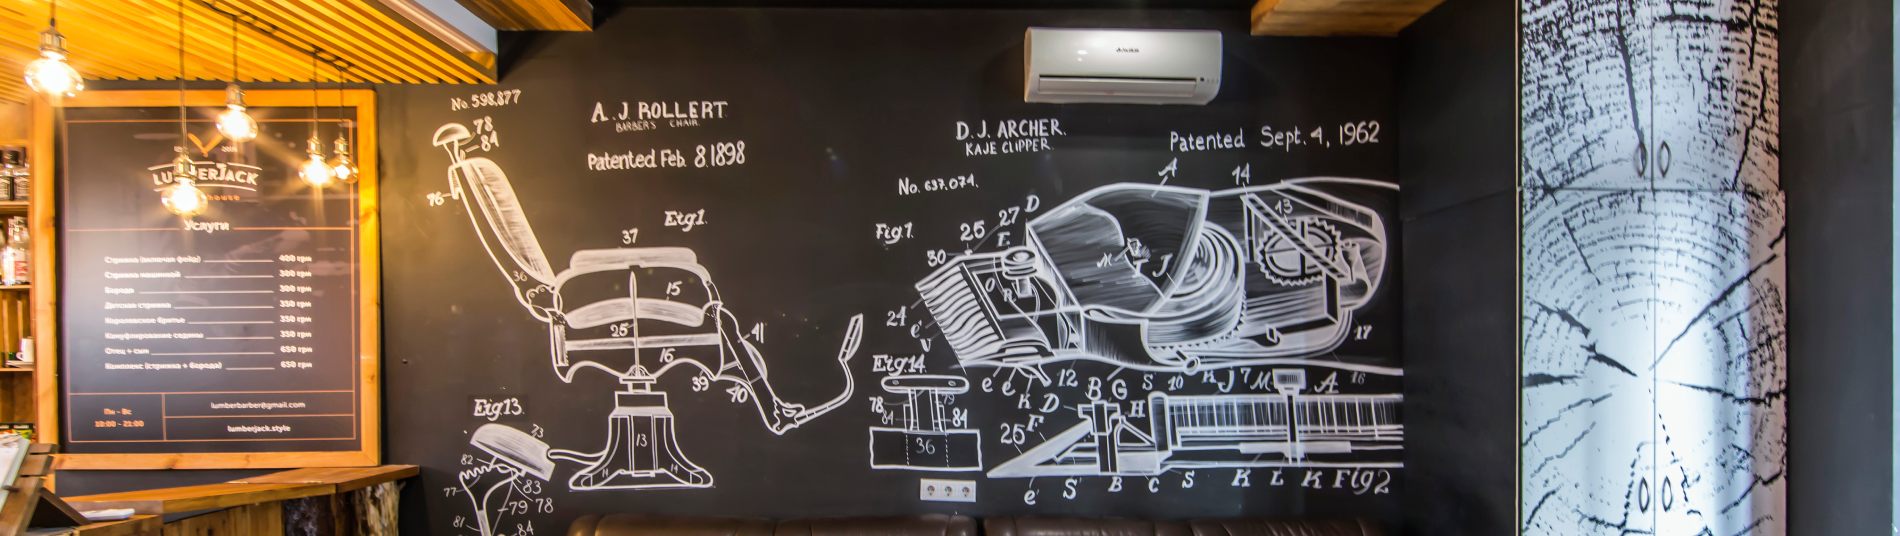 LUMBERJACK
Услуги
Стрижка (включая фейд) 400 грн
Стрижка машинкой 300 грн
Борода 300 грн
Детская стрижка 350 грн
Королевское бритье 350 грн
Камуфлирование седины 350 грн
Отец + сын 650 грн
Комплекс (стрижка + борода) 650 грн
Пн - Вс
10:00 - 21:00
lumberbarber@gmail.com
lumberjack.style
No. 598,877
A. J. ROLLERT
BARBER'S CHAIR.
Patented Feb. 8.1898
78
84
76
Fig1.
37
36
15
25
16
41
39
40
13
14
Fig.13.
73
82
77
83
79 78
81
84
D. J. ARCHER.
KAJE CLIPPER.
Patented Sept. 4, 1962
No. 637.074.
Fig1.
A
14
13
27 D
25
E
30
M J
O
R
24
e'
17
e e' K 12 B G S 10 K J 7 M A 16
Fig.14.
78 79
84 84
36
D
H
26 F
e' S' B C S K L K Fig2